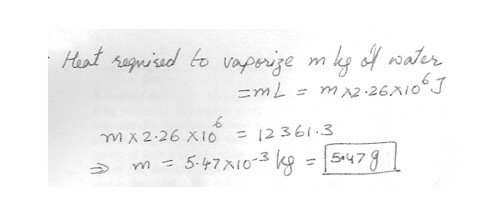 Heat required to vaporize m kg of water
= mL = m × 2.26 × 10⁶ J
m × 2.26 × 10⁶ = 12361.3
⇒ m = 5.47 × 10⁻³ kg = 5.47 g